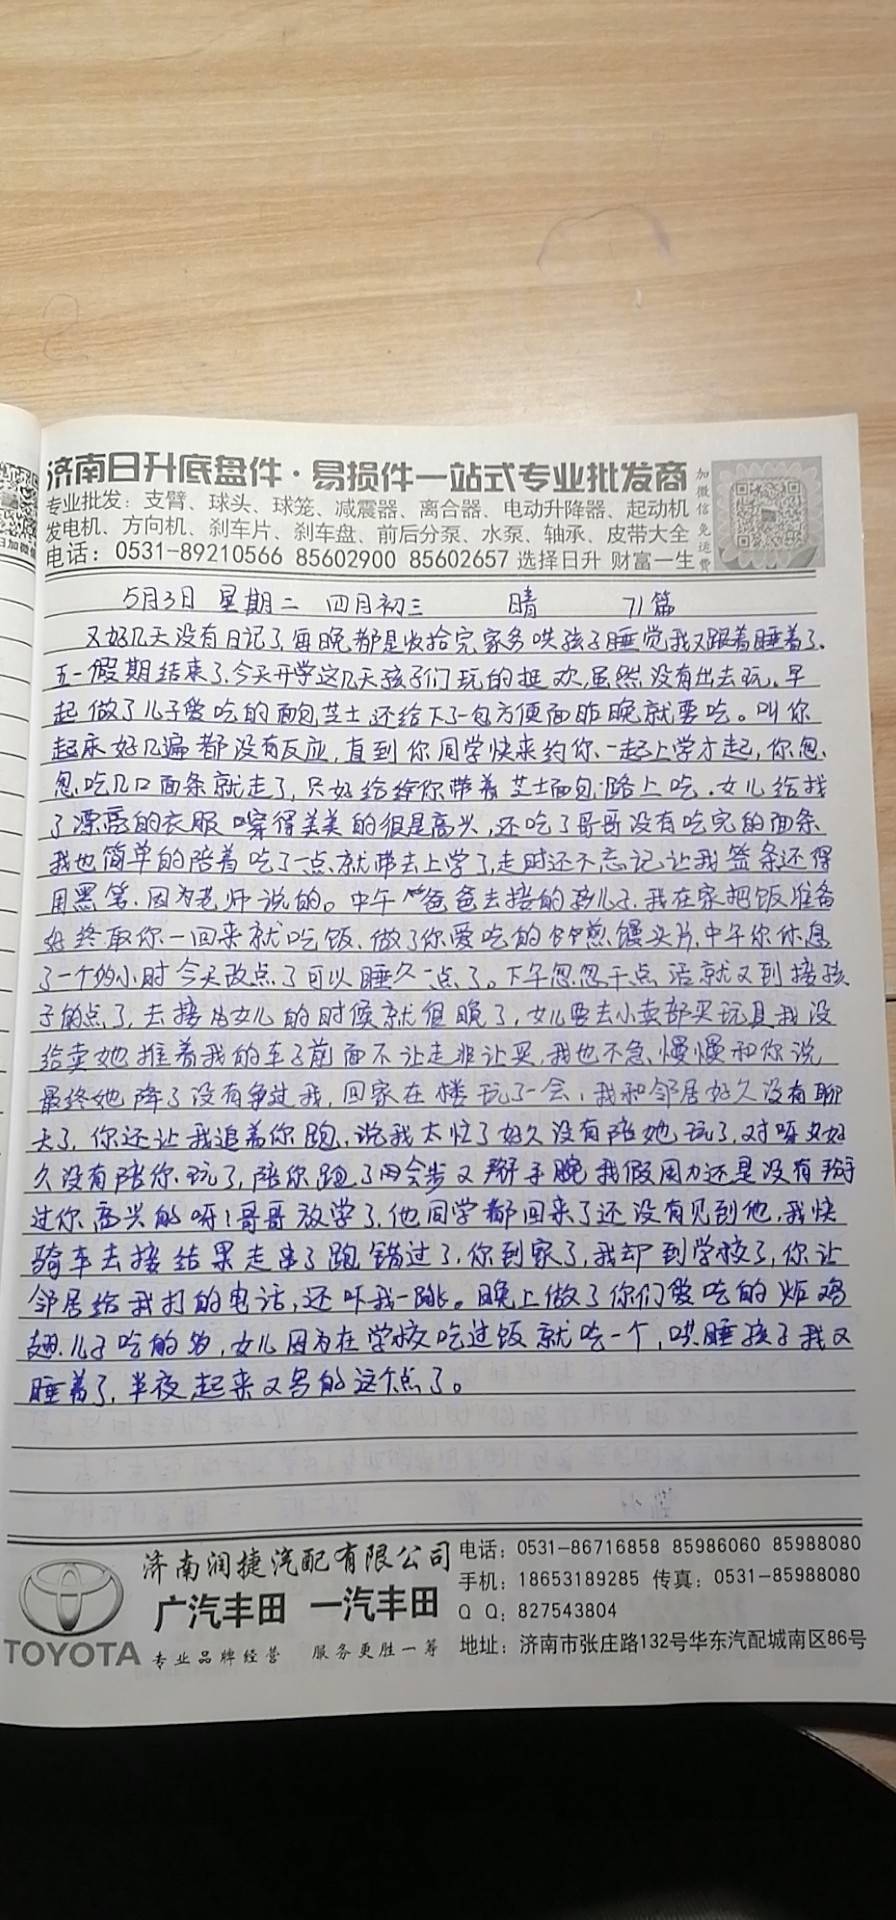 济南日升底盘件·易损件一站式专业批发商
专业批发：支臂、球头、球笼、减震器、离合器、电动升降器、起动机
发电机、方向机、刹车片、刹车盘、前后分泵、水泵、轴承、皮带大全
电话：0531-89210566 85602900 85602657 选择日升 财富一生
加微信免运费
5月3日 星期二 四月初三 晴 71篇
又好几天没有日记了,每晚都是收拾完家务哄孩子睡觉我又跟着睡着了.
五一假期结束了,今天开学这几天孩子们玩的挺欢,虽然没有出去玩,早
起做了儿子爱吃的面包芝士,还给下了一包方便面昨晚就要吃。叫你
起床好几遍都没有反应,直到你同学快来约你、一起上学才起,你忽
忽吃几口面条就走了,只好给你带着芝士面包路上吃.女儿给找
了漂亮的衣服穿得美美的很是高兴,还吃了哥哥没有吃完的面条
我也简单的陪着吃了一点就带去上学了,走时还不忘记让我签条还得
用黑笔.因为老师说的。中午爸爸去接的孩儿子.我在家把饭准备
好终取你一回来就吃饭、做了你爱吃的煎馒头片,中午你休息
了一个小时今天改点了可以睡久一点了。下午忽忽干点活就又到接孩
子的点了,去接女儿的时候就很晚了,女儿要去小卖部买玩具我没
给卖她推着我的车子前面不让走非让买,我也不急、慢慢和你说
最终她降了没有争过我,回家在楼玩了一会,我和邻居好久没有聊
天了,你还让我追着你跑,说我太忙了好久没有陪她玩了,对呀女好
久没有陪你玩了,陪你跑了两步又掰手腕我假用力还是没有掰
过你高兴的呀!哥哥放学了,他同学都回来了还没有见到他,我快
骑车去接结果走串了跑错过了,你到家了,我却到学校了,你让
邻居给我打的电话,还吓我一跳。晚上做了你们爱吃的炸鸡
翅.儿子吃的多,女儿因为在学校吃过饭就吃一个,哄睡孩子我又
睡着了,半夜起来又写的这个点了。
济南润捷汽配有限公司
广汽丰田 一汽丰田
TOYOTA 专业品牌经营 服务更胜一筹
电话：0531-86716858 85986060 85988080
手机：18653189285 传真：0531-85988080
QQ：827543804
地址：济南市张庄路132号华东汽配城南区86号